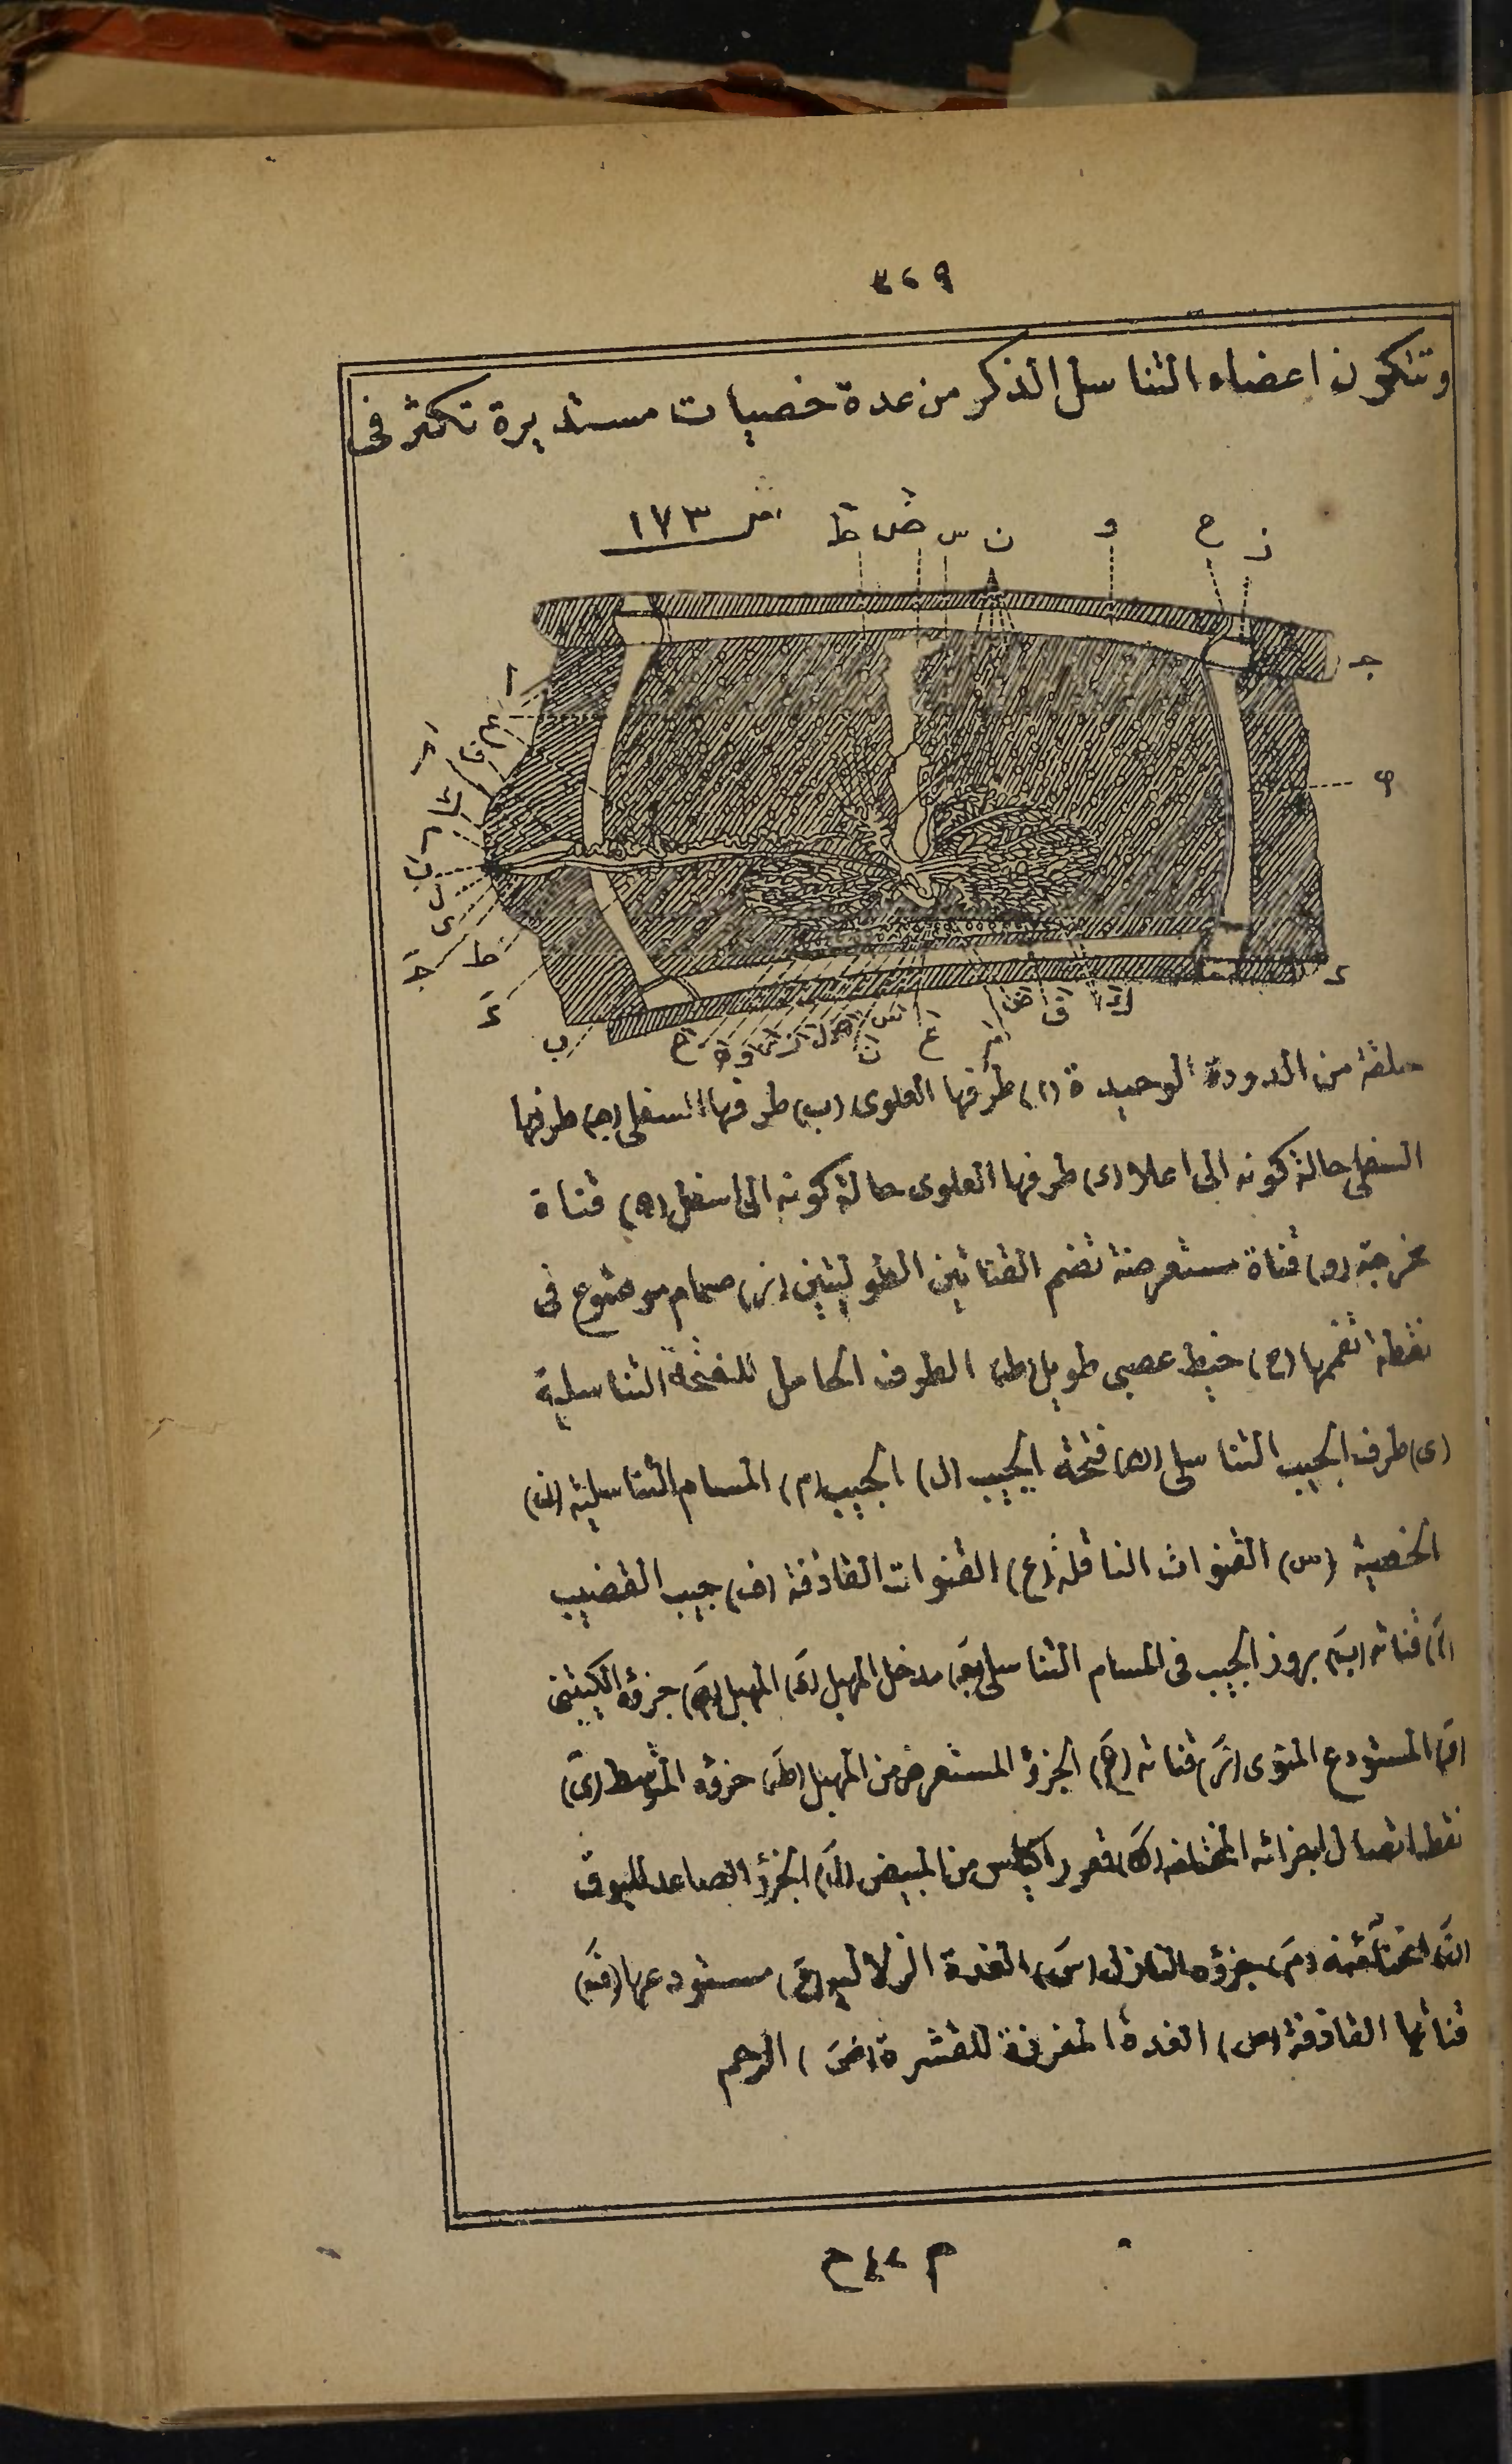 ٣٢٩
وتتكون اعضاء التناسل الذكر من عدة خصيات مستديرة تكثر فى
١٧٣
ز ح و ن س ض ظ
حلقة من الدودة الوحيدة (ا) طرفها العلوى (ب) طرفها السفلى (ج) طرفها
السفلى حالة كونه الى اعلا (د) طرفها العلوى حالة كونه الى اسفل (ه) قناة
مخرجة (و) قناة مستعرضة تضم القناتين الطوليتين (ز) صمام موضوع فى
نقطة تفممها (ح) خيط عصبى طويل (ط) الطرف الحامل للفتحة التناسلية
(ى) طرف الجيب التناسلى (ك) فتحة الجيب (ل) الجيب (م) المسام التناسلية (ن)
الخصية (س) القنوات الناقلة (ع) القنوات القاذفة (ف) جيب القضيب
(اَ) قناته (بَ) بروز الجيب فى المسام التناسلى (جَ) مدخل المهبل (دَ) المهبل (هَ) جزؤه
(وَ) المستودع المنوى (زَ) قناته (حَ) الجزؤ المستعرض من المهبل (طَ) جزؤه المتوسط (ىَ)
نقطة اتصال اجزائه المختلفة (كَ) قعور اكياس من المبيض (لَ) الجزؤ الصاعد للبوق
(مَ) جزؤه النازل (سَ) الغدة الزلالية (عَ) مستودعها (فَ)
قناتها القاذفة (صَ) الغدة المفرزة للقشرة (ضَ) الرحم
م ٤٢ ح